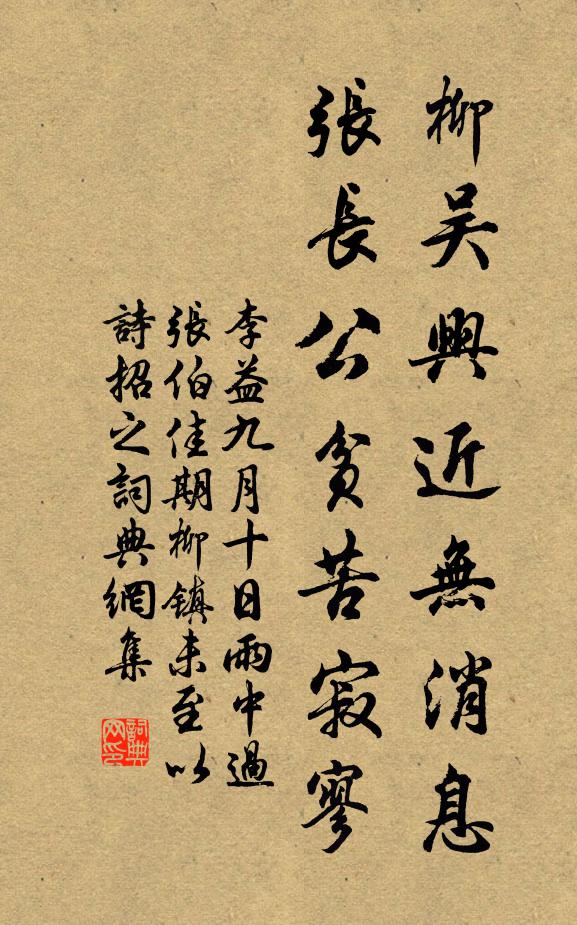 柳吴興近無消息
張長公貧苦寂寥
李益九月十日雨中過
張伯佳期柳鎮未至以
詩招之詞典網集
詞典
网印